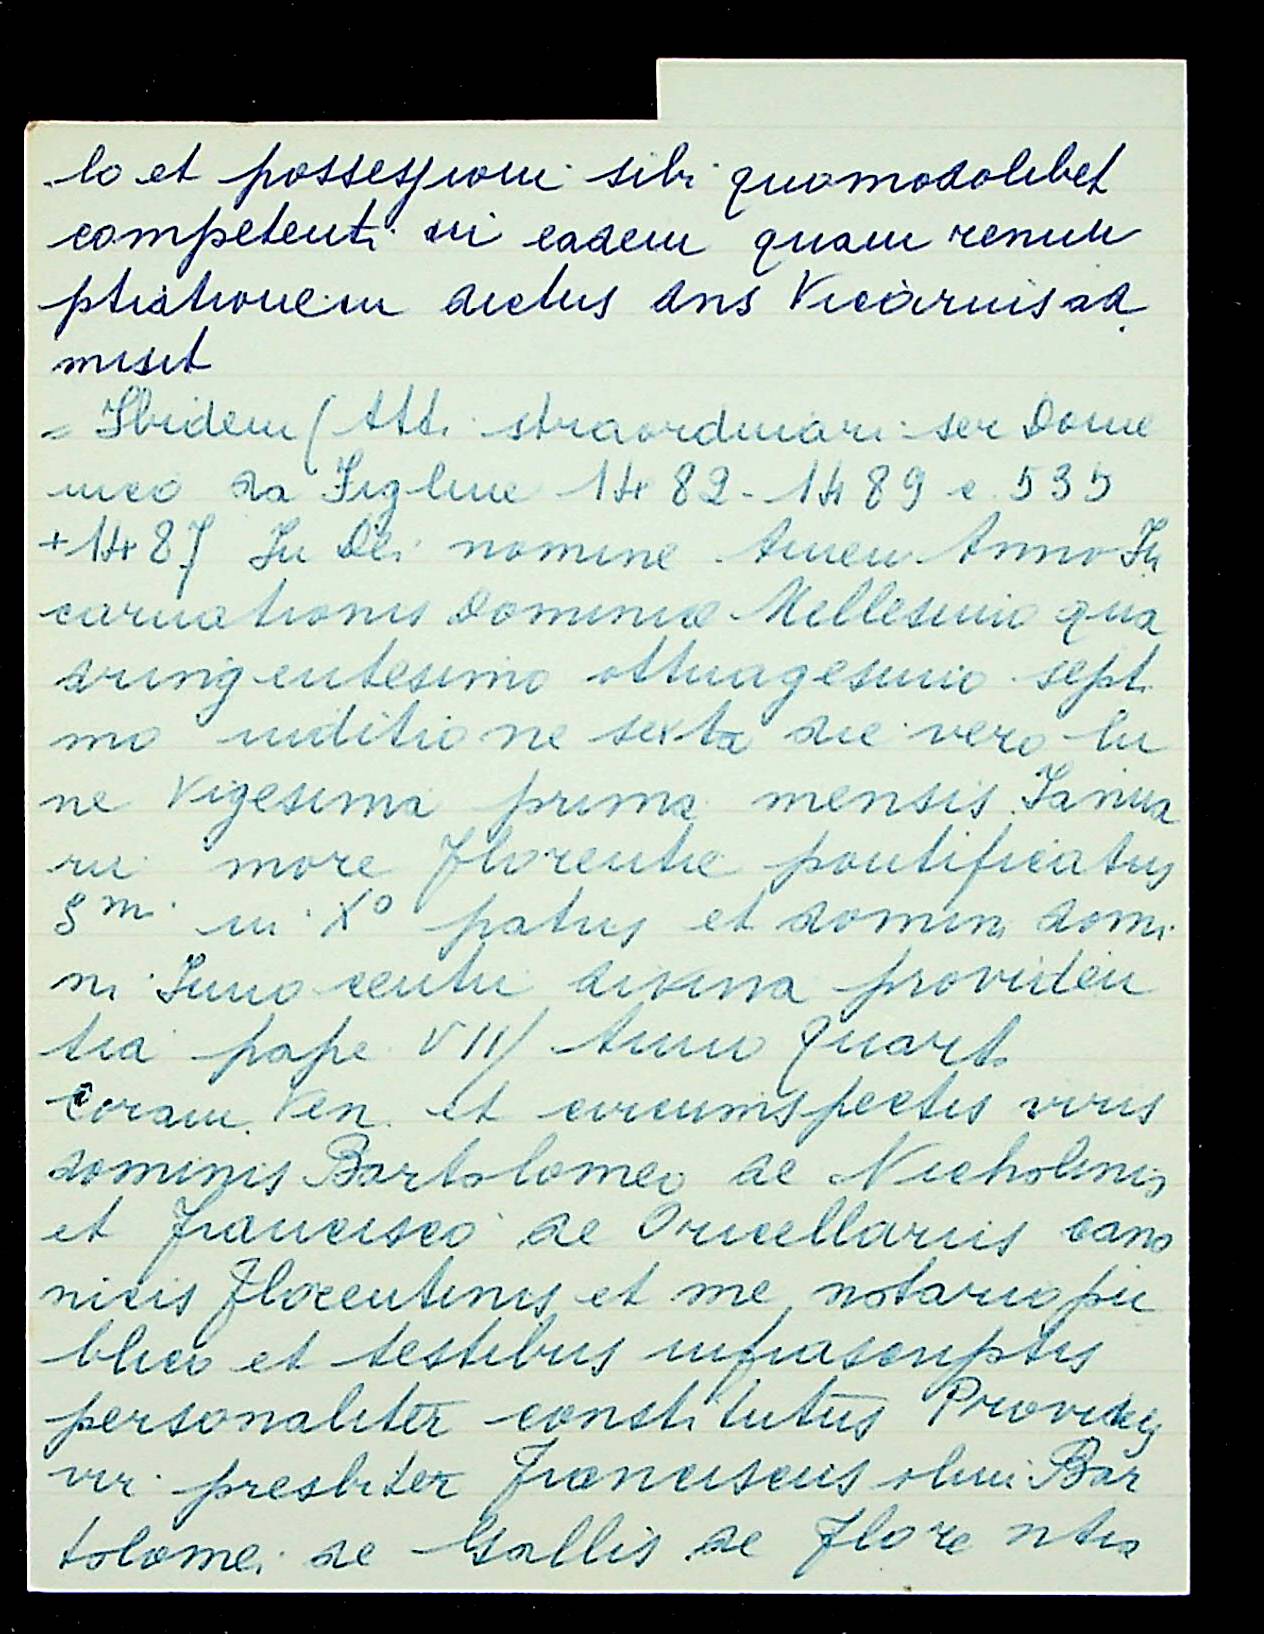 lo et possessioni sibi quomodolibet
competenti in eadem quam renun
ptiationem dictus dns Vicarius ad
misit
= Ibidem (Atti straordinari ser Dome
nico da Figline 1482-1489 c. 535
+1487 In Dei nomine Amen Anno In
carnationis Dominice Millesimo qua
dringentesimo ottuagesimo septi
mo inditione sexta die vero lu
ne Vigesima prima mensis Janua
rii more florentie pontificatus
S mi in Xo patris et domini domi
ni Innocentii divina providen
tia pape VIII Anno quarto
Coram Ven. et circumspectis viris
dominis Bartolomeo de Nicholinis
et francisco de Oricellariis cano
nicis florentinis et me notario pu
blico et testibus infrascriptis
personaliter constitutus Providus
vir presbiter franciscus olim Bar
tolomei de Gallis de florentia